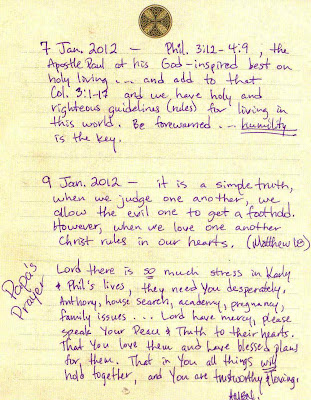 7 Jan. 2012 — Phil. 3:12-4:9, the
Apostle Paul at his God-inspired best on
holy living... and add to that
Col. 3:1-17 and we have holy and
righteous guidelines (rules) for living in
this world. Be forewarned... humility
is the key.
9 Jan. 2012 — it is a simple truth,
when we judge one another, we
allow the evil one to get a foothold.
However, when we love one another
Christ rules in our hearts. (Matthew 18)
Papa's
Prayer
Lord there is so much stress in Karly
& Phil's lives, they need You desperately,
Anthony, house search, academy, pregnancy,
family issues... Lord have mercy, please
speak Your Peace & Truth to their hearts.
That You love them and have blessed plans
for them. That in You all things will
hold together, and You are trustworthy & loving.